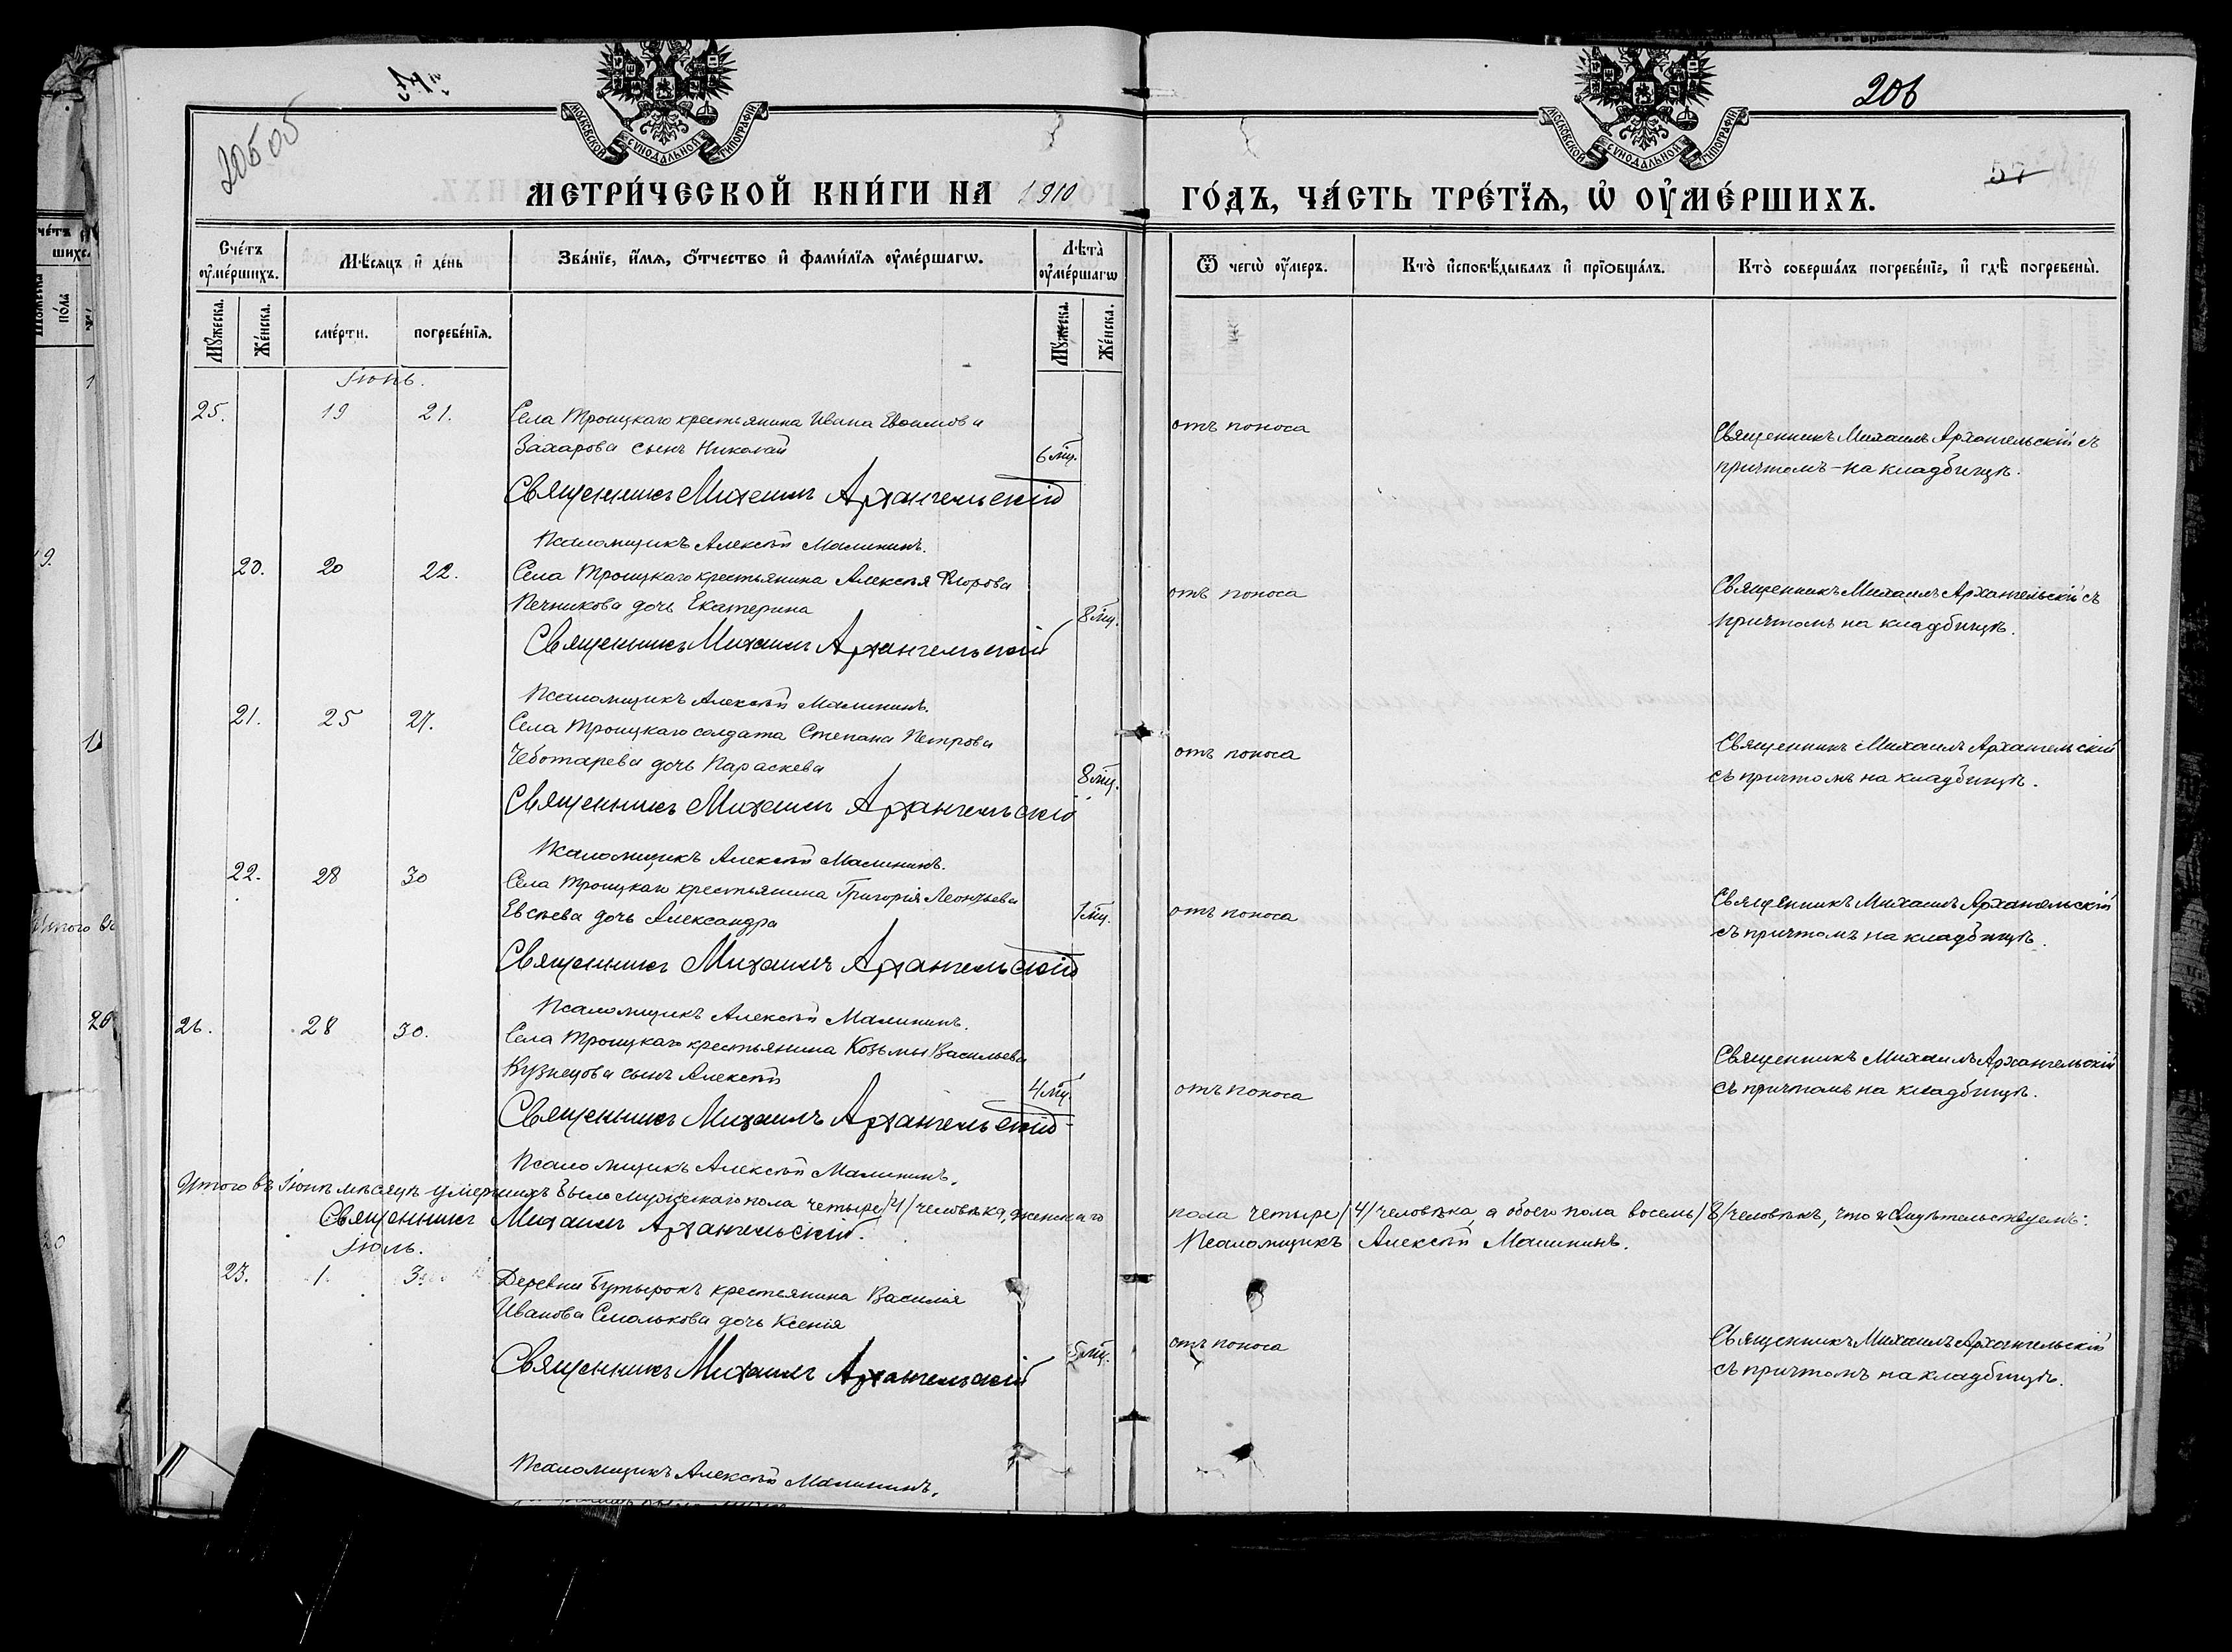 206
205 об
57
МОСКОВСКОЙ СѴНОДАЛЬНОЙ ТИПОГРАФІИ
МОСКОВСКОЙ СѴНОДАЛЬНОЙ ТИПОГРАФІИ
МЕТРИ́ЧЕСКОЙ КНИ́ГИ НА 1910 ГО́ДЪ, ЧА́СТЬ ТРЕ́ТЇѦ, Ѡ҆ ОУ҆МЕ́РШИХЪ.
Сче́тъ оу҆ме́ршихъ.
Мѣ́сяцъ и҆ де́нь
Зва́нїе, и҆́мѧ, ѻ҆́тчество и҆ фами́лїѧ оу҆ме́ршагѡ.
Лѣта̀ оу҆ме́ршагѡ
Ѿ чегѡ̀ оу҆́меръ.
Кто̀ и҆сповѣ́дывалъ и҆ прїѡбща́лъ.
Кто̀ соверша́лъ погребе́нїе, и҆ гдѣ̀ погребены̀.
Мꙋ́жеска.
Же́нска.
сме́рти.
погребе́нїѧ.
Мꙋ́жеска.
Же́нска.
Іюнь.
25. 19 21. Села Троицкаго крестьянина Ивана Евфимова
Захарова сынъ Николай 6 мц. отъ поноса Священникъ Михаилъ Архангельскій съ
причтомъ - на кладбищѣ.
Священникъ Михаилъ Архангельскій
Псаломщикъ Алексѣй Малининъ.
20. 20 22. Села Троицкаго крестьянина Алексѣя Ѳедорова
Печникова дочь Екатерина 8 мц. отъ поноса Священникъ Михаилъ Архангельскій съ
причтомъ на кладбищѣ.
Священникъ Михаилъ Архангельскій
Псаломщикъ Алексѣй Малининъ.
21. 25 27. Села Троицкаго солдата Степана Петрова
Чеботарева дочь Параскева 8 мц. отъ поноса Священникъ Михаилъ Архангельскій
съ причтомъ на кладбищѣ.
Священникъ Михаилъ Архангельскій
Псаломщикъ Алексѣй Малининъ.
22. 28 30 Села Троицкаго крестьянина Григорія Леонтьева
Евсѣева дочь Александра 1 мц. отъ поноса Священникъ Михаилъ Архангельскій
съ причтомъ на кладбищѣ.
Священникъ Михаилъ Архангельскій
Псаломщикъ Алексѣй Малининъ.
26. 28 30. Села Троицкаго крестьянина Козьмы Васильева
Кузнецова сынъ Алексѣй 4 мц. отъ поноса Священникъ Михаилъ Архангельскій
съ причтомъ на кладбищѣ.
Священникъ Михаилъ Архангельскій
Псаломщикъ Алексѣй Малининъ.
Итого въ Іюнѣ мѣсяцѣ умершихъ было мужескаго пола четыре /4/ человѣка, женскаго пола четыре /4/ человѣка, а обоего пола восемь /8/ человѣкъ, что и свидѣтельствуемъ:
Священникъ Михаилъ Архангельскій. Псаломщикъ Алексѣй Малининъ.
Іюль.
23. 1. 3. Деревни Бутырокъ крестьянина Василія
Иванова Смолькова дочь Ксенія 5 мц. отъ поноса Священникъ Михаилъ Архангельскій
съ причтомъ на кладбищѣ.
Священникъ Михаилъ Архангельскій
Псаломщикъ Алексѣй Малининъ.